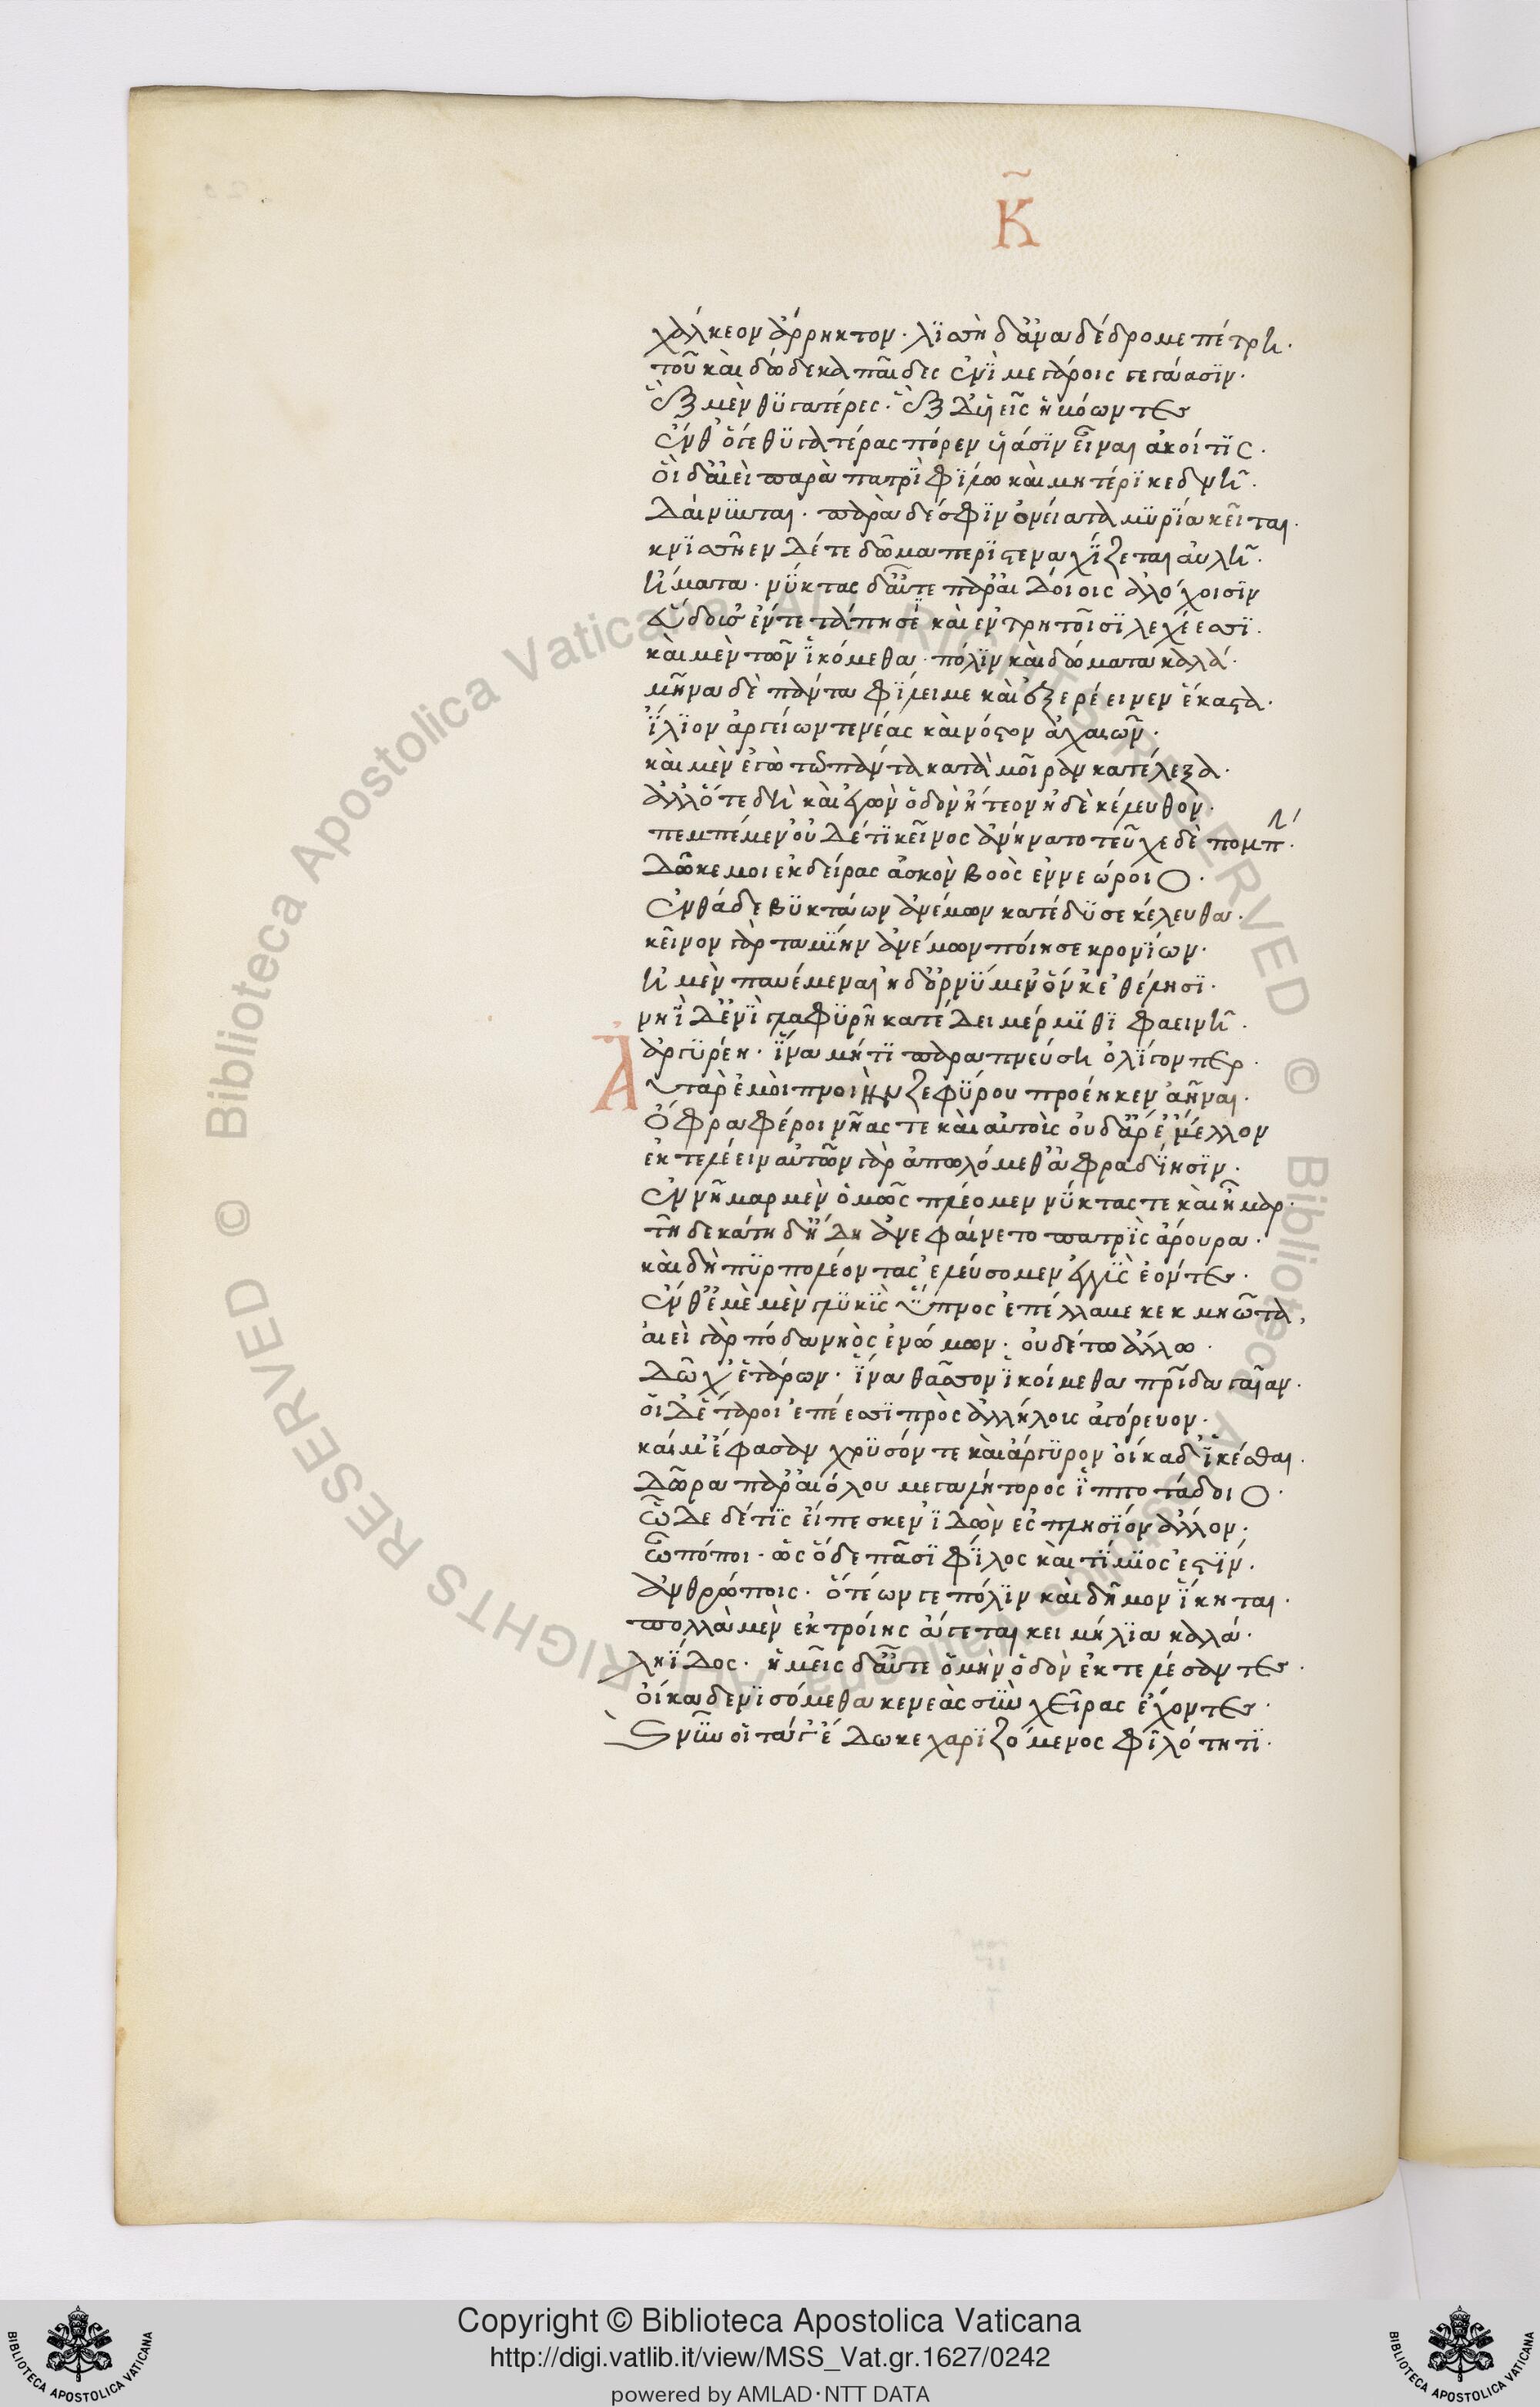 Κ
χάλκεον ἄρρηκτον· λϊσσὴ δ' ἀναδέδρομε πέτρη·
τοῦ καὶ δώδεκα παῖδες ἐνῒ μεγάροις γεγάασϊν·
ἓξ μὲν θϋγατέρες· ἓξ δ' ϋἱεῖς ἡβώωντες
ἔνθ' ὅγε θϋγατέρας πόρεν υἱάσϊν εἶναι ἀκοίτϊς·
οἳ δ' ἀιεὶ παρὰ πατρῒ φίλω καὶ μητέρϊ κεδνῆ·
δαίνϋνται· παρὰ δέ σφϊν ὀνείατα μϋρία κεῖται·
κνϊσῆεν δέ τε δῶμα περϊστεναχίζεται αὐλῆ·
ἤματα· νύκτας δ' αὖτε παρ' αἰδοίοις ἀλόχοισϊν
εὕδουσ' ἔν τε τάπησϊ καὶ ἐν τρητοῖσϊ λεχέεσσϊ·
καὶ μὲν τῶν ἱκόμεθα· πόλϊν καὶ δώματα καλά·
μῆνα δὲ πάντα φίλει με καὶ ἐξερέεινεν ἕκαστα·
ἴλϊον ἀργείων τε νέας καὶ νόστον ἀχαιῶν·
καὶ μὲν ἐγὼ τῶ πάντα κατὰ μοῖραν κατέλεξα·
ἀλλ' ὅτε δὴ καὶ ἐγὼν ὁδὸν ἤτεον ἠδὲ κέλευθον·
πεμπέμεν οὐδέ τϊ κεῖνος ἀνήνατο τεῦχε δὲ πομπήν·
δῶκε μοι ἐκδείρας ἀσκὸν βοὸς ἐννεώροιο·
ἔνθα δὲ βϋκτάων ἀνέμων κατέδϋσε κέλευθα·
κεῖνον γὰρ ταμίην ἀνέμων ποίησε κρονίων·
ἠμὲν παυέμεναι ἠδ' ὀρνύμεν ὅν κ' ἐθέλησϊ·
νηῒ δ' ἐνῒ γλαφϋρῆ κατέδει μέρμϊθϊ φαεινῆ·
ἀργϋρέη· ἵνα μή τϊ παραπνεύση ὀλίγον περ·
Αὐτὰρ ἐμοὶ πνοιὴν ζεφύρου προέηκεν ἀῆναι·
ὄφρα φέροι νῆας τε καὶ αὐτοὺς οὐδ' ἄρ' ἔμελλον
ἐκτελέειν αὐτῶν γὰρ ἀπωλόμεθ' ἀφραδίησϊν·
ἐννῆμαρ μὲν ὁμῶς πλέομεν νύκτας τε καὶ ἦμαρ·
τῆ δεκάτη δ' ἤδη ἀνεφαίνετο πατρὶς ἄρουρα·
καὶ δὴ πϋρπολέοντας ἐλεύσομεν ἐγγὺς ἐόντες·
ἔνθ' ἐμὲ μὲν γλϋκὺς ὕπνος ἐπέλλαβε κεκμηῶτα,
αἰεὶ γὰρ πόδα νηὸς ἐνώμων· οὐδέ τω ἄλλω·
δῶχ' ἑτάρων· ἵνα θᾶσσον ἱκοίμεθα πρίδα γαῖαν·
οἱ δ' ἕταροι ἐπέεσσϊ πρὸς ἀλλήλοις ἀγόρευον·
καί μ' ἔφασαν χρϋσόν τε καὶ ἄργϋρον οἴκαδ' ἱκέσθαι·
δῶρα παρ' αἰόλου μεγαλήτορος ἱπποτάδοιο·
ὧδε δέ τϊς εἴπεσκεν ἰδὼν ἐς πλησίον ἄλλον·
ὦ πόποι· ὡς ὅδε πᾶσϊ φίλος καὶ τίμϊος ἐστίν·
ἀνθρώποις· ὅτεών γε πόλϊν καὶ δῆμον ἵκηται·
πολλὰ μὲν ἐκ τροίης ἄγεται κειμήλϊα καλά·
ληΐδος· ἡμεῖς δ' αὖτε ὁμὴν ὁδὸν ἐκτελέσαντες·
οἴκαδε νισόμεθα κενεὰς σὺν χεῖρας ἔχοντες·
καὶ νῦν οἱ τά γ' ἔδωκε χαρϊζόμενος φιλότητϊ·
Copyright © Biblioteca Apostolica Vaticana
http://digi.vatlib.it/view/MSS_Vat.gr.1627/0242
powered by AMLAD·NTT DATA
© Biblioteca Apostolica Vaticana ALL RIGHTS RESERVED
© Biblioteca Apostolica Vaticana ALL RIGHTS RESERVED
BIBLIOTECA APOSTOLICA VATICANA
BIBLIOTECA APOSTOLICA VATICANA